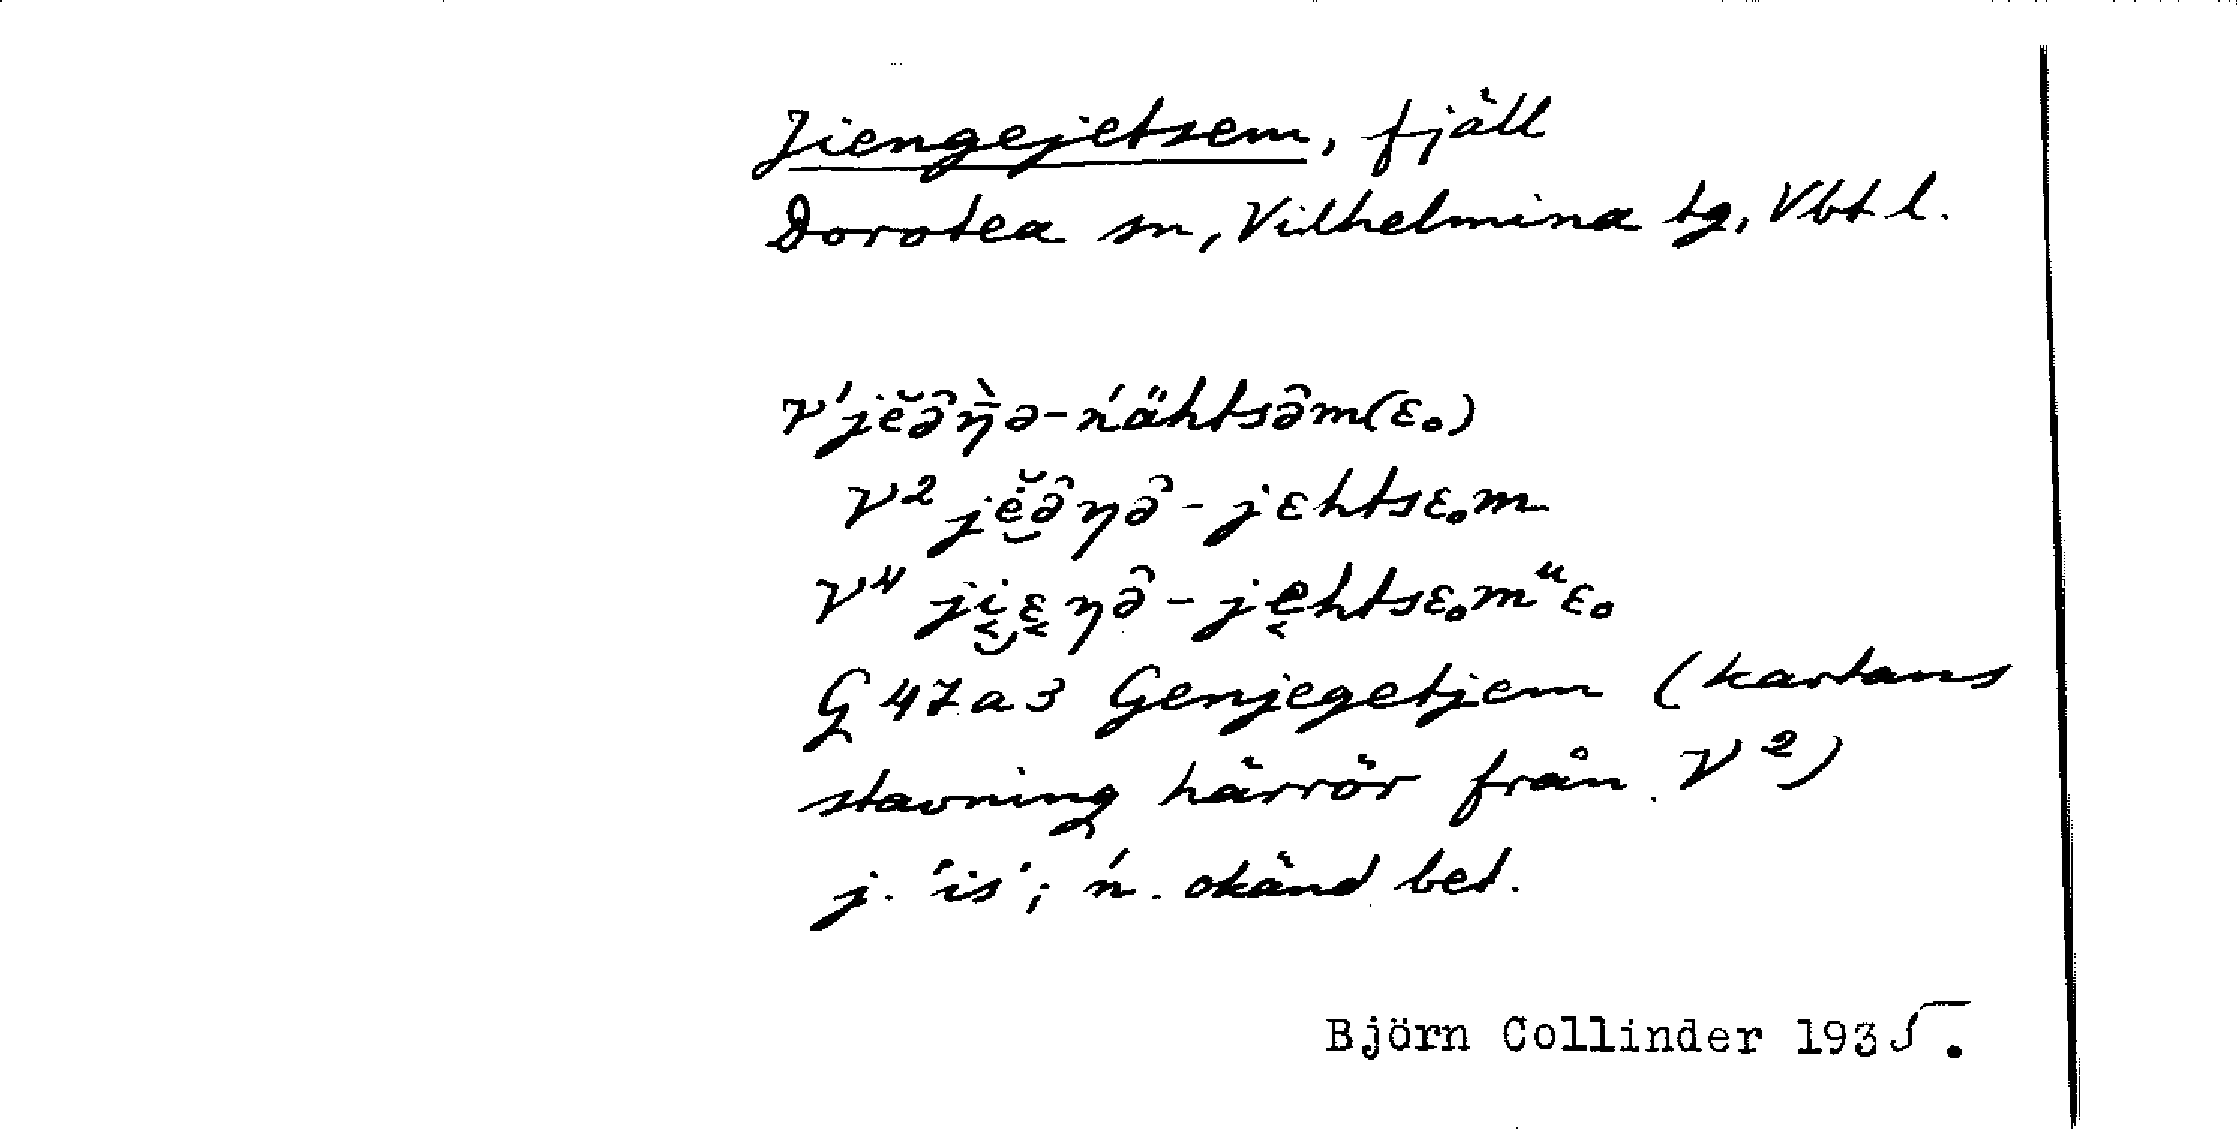 Jiengejetsem, fjäll
Dorotea sn, Vilhelmina tg, Vbt l.
V¹ jĕə̑η̄̀ə-ńähtsə̑m(ε₀)
V² jė̮̆ə̑ηə̑-jεhtsε₀m
V⁴ ji͔̮ε͔ηə̑-je͔htsε₀mᵘε₀
G 47a3 Genjegetjem (kartans
stavning härrör från V²)
j. 'is'; ń. okänd bet.
Björn Collinder 1935.